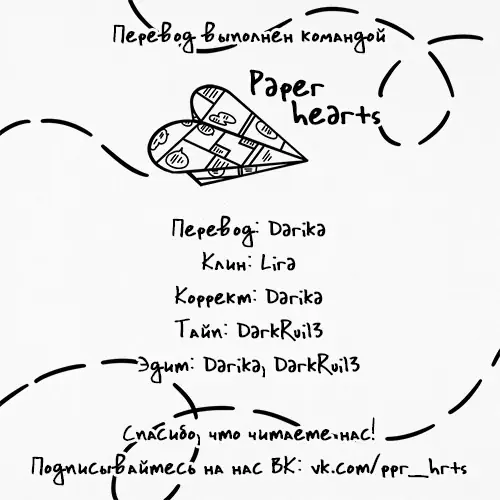 Перевод выполнен командой
Paper
hearts
Перевод: Darika
Клин: Lira
Коррект: Darika
Тайп: DarkRui13
Эдит: Darika, DarkRui13
Спасибо, что читаете нас!
Подписывайтесь на нас ВК: vk.com/ppr_hrts